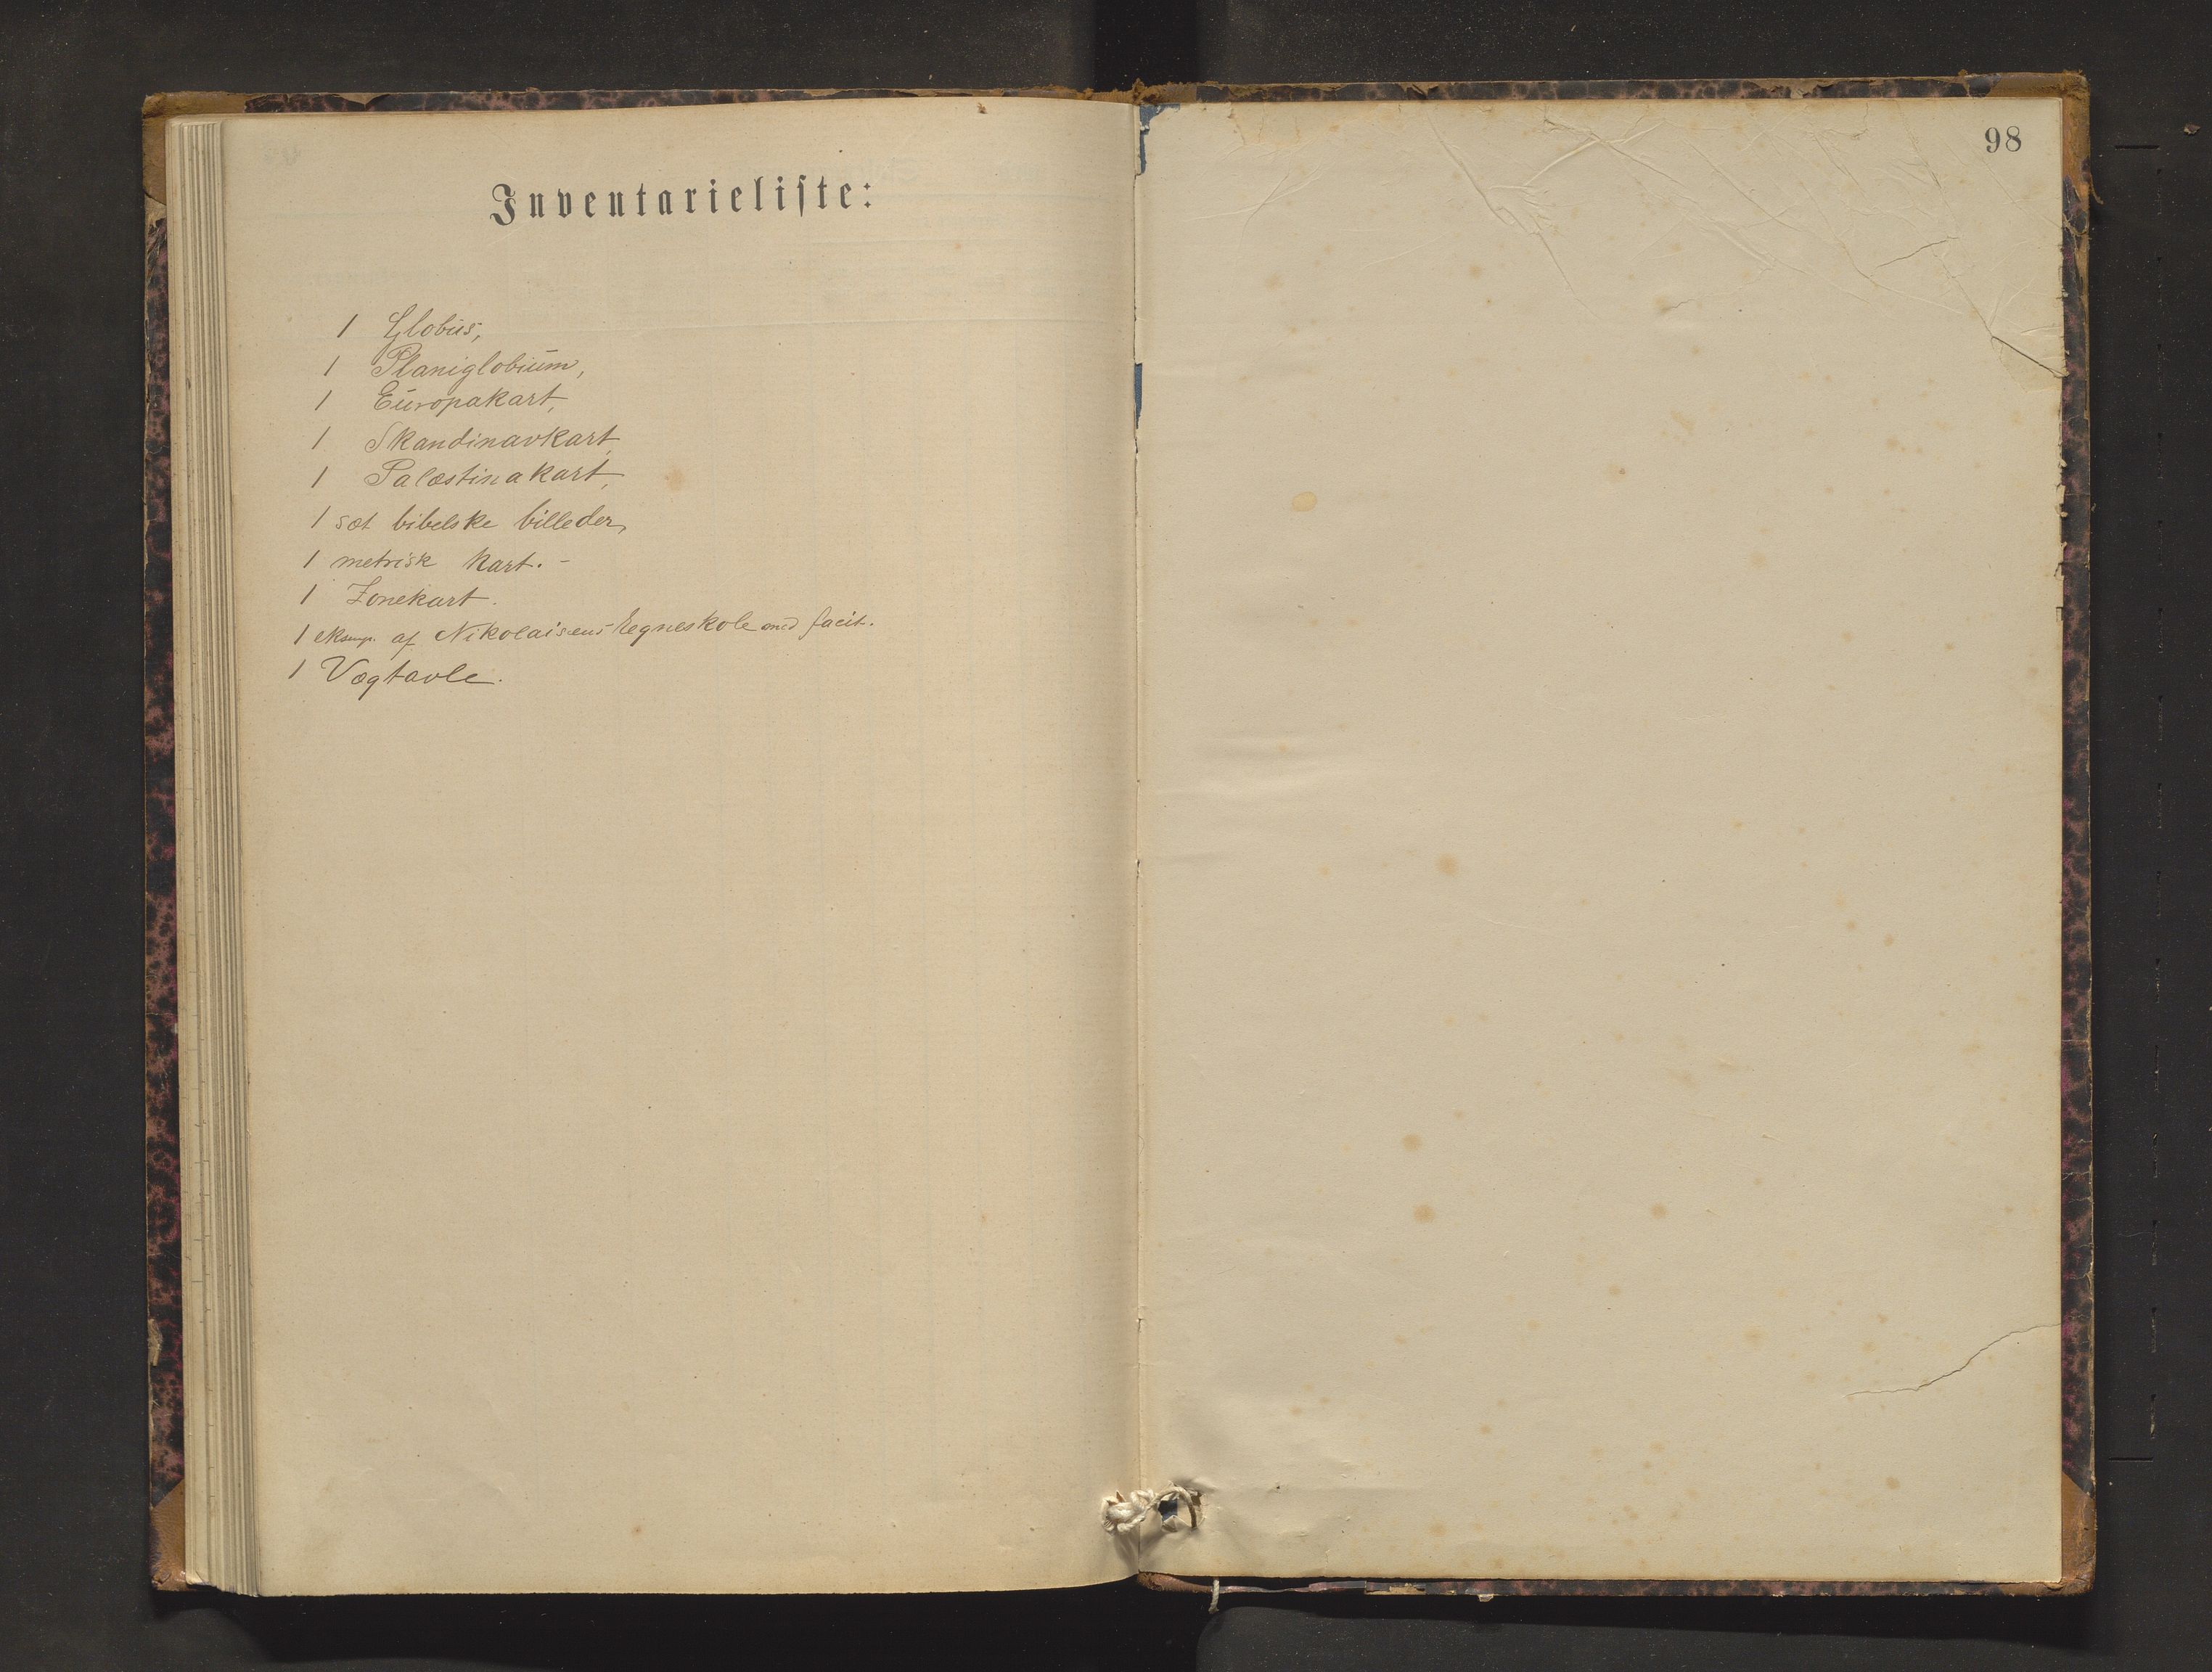 Inventarieliste:
98
1 Globus,
1 Planiglobium,
1 Europakart,
1 Skandinavkart,
1 Palæstinakart,
1 sæt bibelske billeder,
1 metrisk kart. -
1 Zonekart.
1 eksmp. af Nikolaisens Regneskole med facit.
1 Vægtavle.